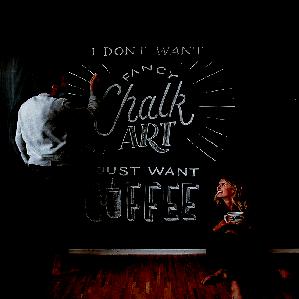 I DON'T WANT
FANCY
Chalk
ART
JUST WANT
COFFEE